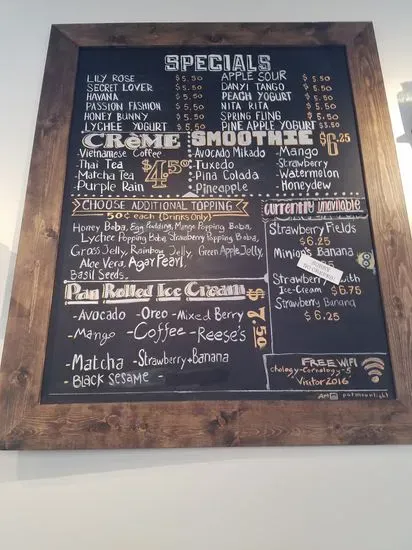 SPECIALS
LILY ROSE $5.50
SECRET LOVER $5.50
HAVANA $5.50
PASSION FASHION $5.50
HONEY BUNNY $5.50
LYCHEE YOGURT $5.50
APPLE SOUR $5.50
DANYI TANGO $5.50
PEACH YOGURT $5.50
NITA RITA $5.50
SPRING FLING $5.50
PINE APPLE YOGURT $5.50
CRÈME
-Vietnamese Coffee
-Thai Tea
-Matcha Tea
-Purple Rain
$4.50
SMOOTHIE $6.25
-Avocado Mikado
-Tuxedo
-Pina Colada
-Pineapple
-Mango
-Strawberry
-Watermelon
Honeydew
CHOOSE ADDITIONAL TOPPING
50¢ each (Drinks Only)
Honey Boba, Egg Pudding, Mango Popping Boba,
Lychee Popping Boba, Strawberry Popping Boba,
Grass Jelly, Rainbow Jelly, Green Apple Jelly,
Aloe Vera, Agar Pearl,
Basil Seeds.
currently unavailable
Strawberry Fields
$6.25
Minion's Banana
Strawberry with
Ice-Cream $6.75
Strawberry Banana
$6.25
Pan Rolled Ice Cream $7.50
-Avocado -Oreo -Mixed Berry
-Mango -Coffee -Reese's
-Matcha -Strawberry+Banana
-BLACK SESAME -
FREE WIFI
chology-Cornology-5
-Visitor2016